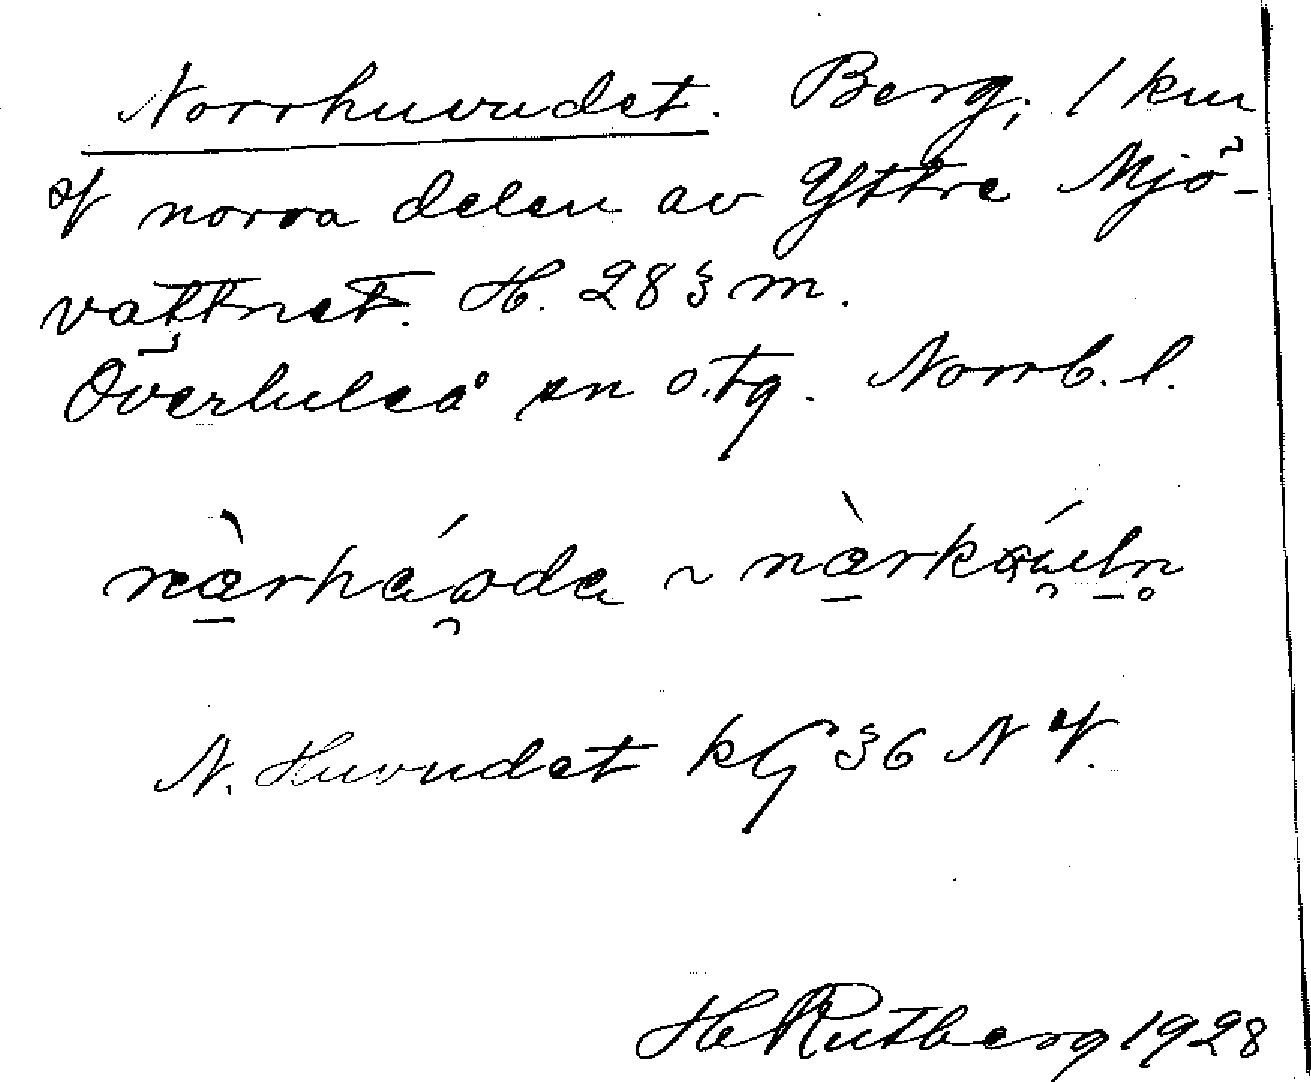 Norrhuvudet. Berg, 1 km
V norra delen av Yttre Mjö-
vattnet. H. 283 m.
Överluleå sn o. tg. Norrb. l.
N. Huvudet kG 36 N V.
H Rutberg 1928